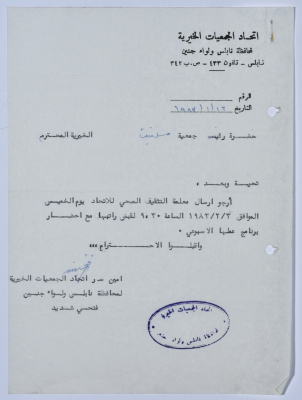 اتحاد الجمعيات الخيرية
لمحافظة نابلس ولواء جنين
نابلس - تلفون ٤٣٣ - ص.ب ٣٤٢
الرقم
التاريخ
حضرة رئيس جمعية الخيرية المحترم
تحية وبعد ،
أرجو ارسال معلمة التثقيف الصحي للاتحاد يوم الخميس
الموافق ١٩٨٣/٢/٣ الساعة ٩٥٣٠ لقبض راتبها مع احضار
برنامج عملها الاسبوعي ،
واقبلوا الاحترام ،،،
امين سر اتحاد الجمعيات الخيرية
لمحافظة نابلس ولواء جنين
فتحي شديد
اتحاد الجمعيات الخيرية
لمحافظة نابلس ولواء جنين